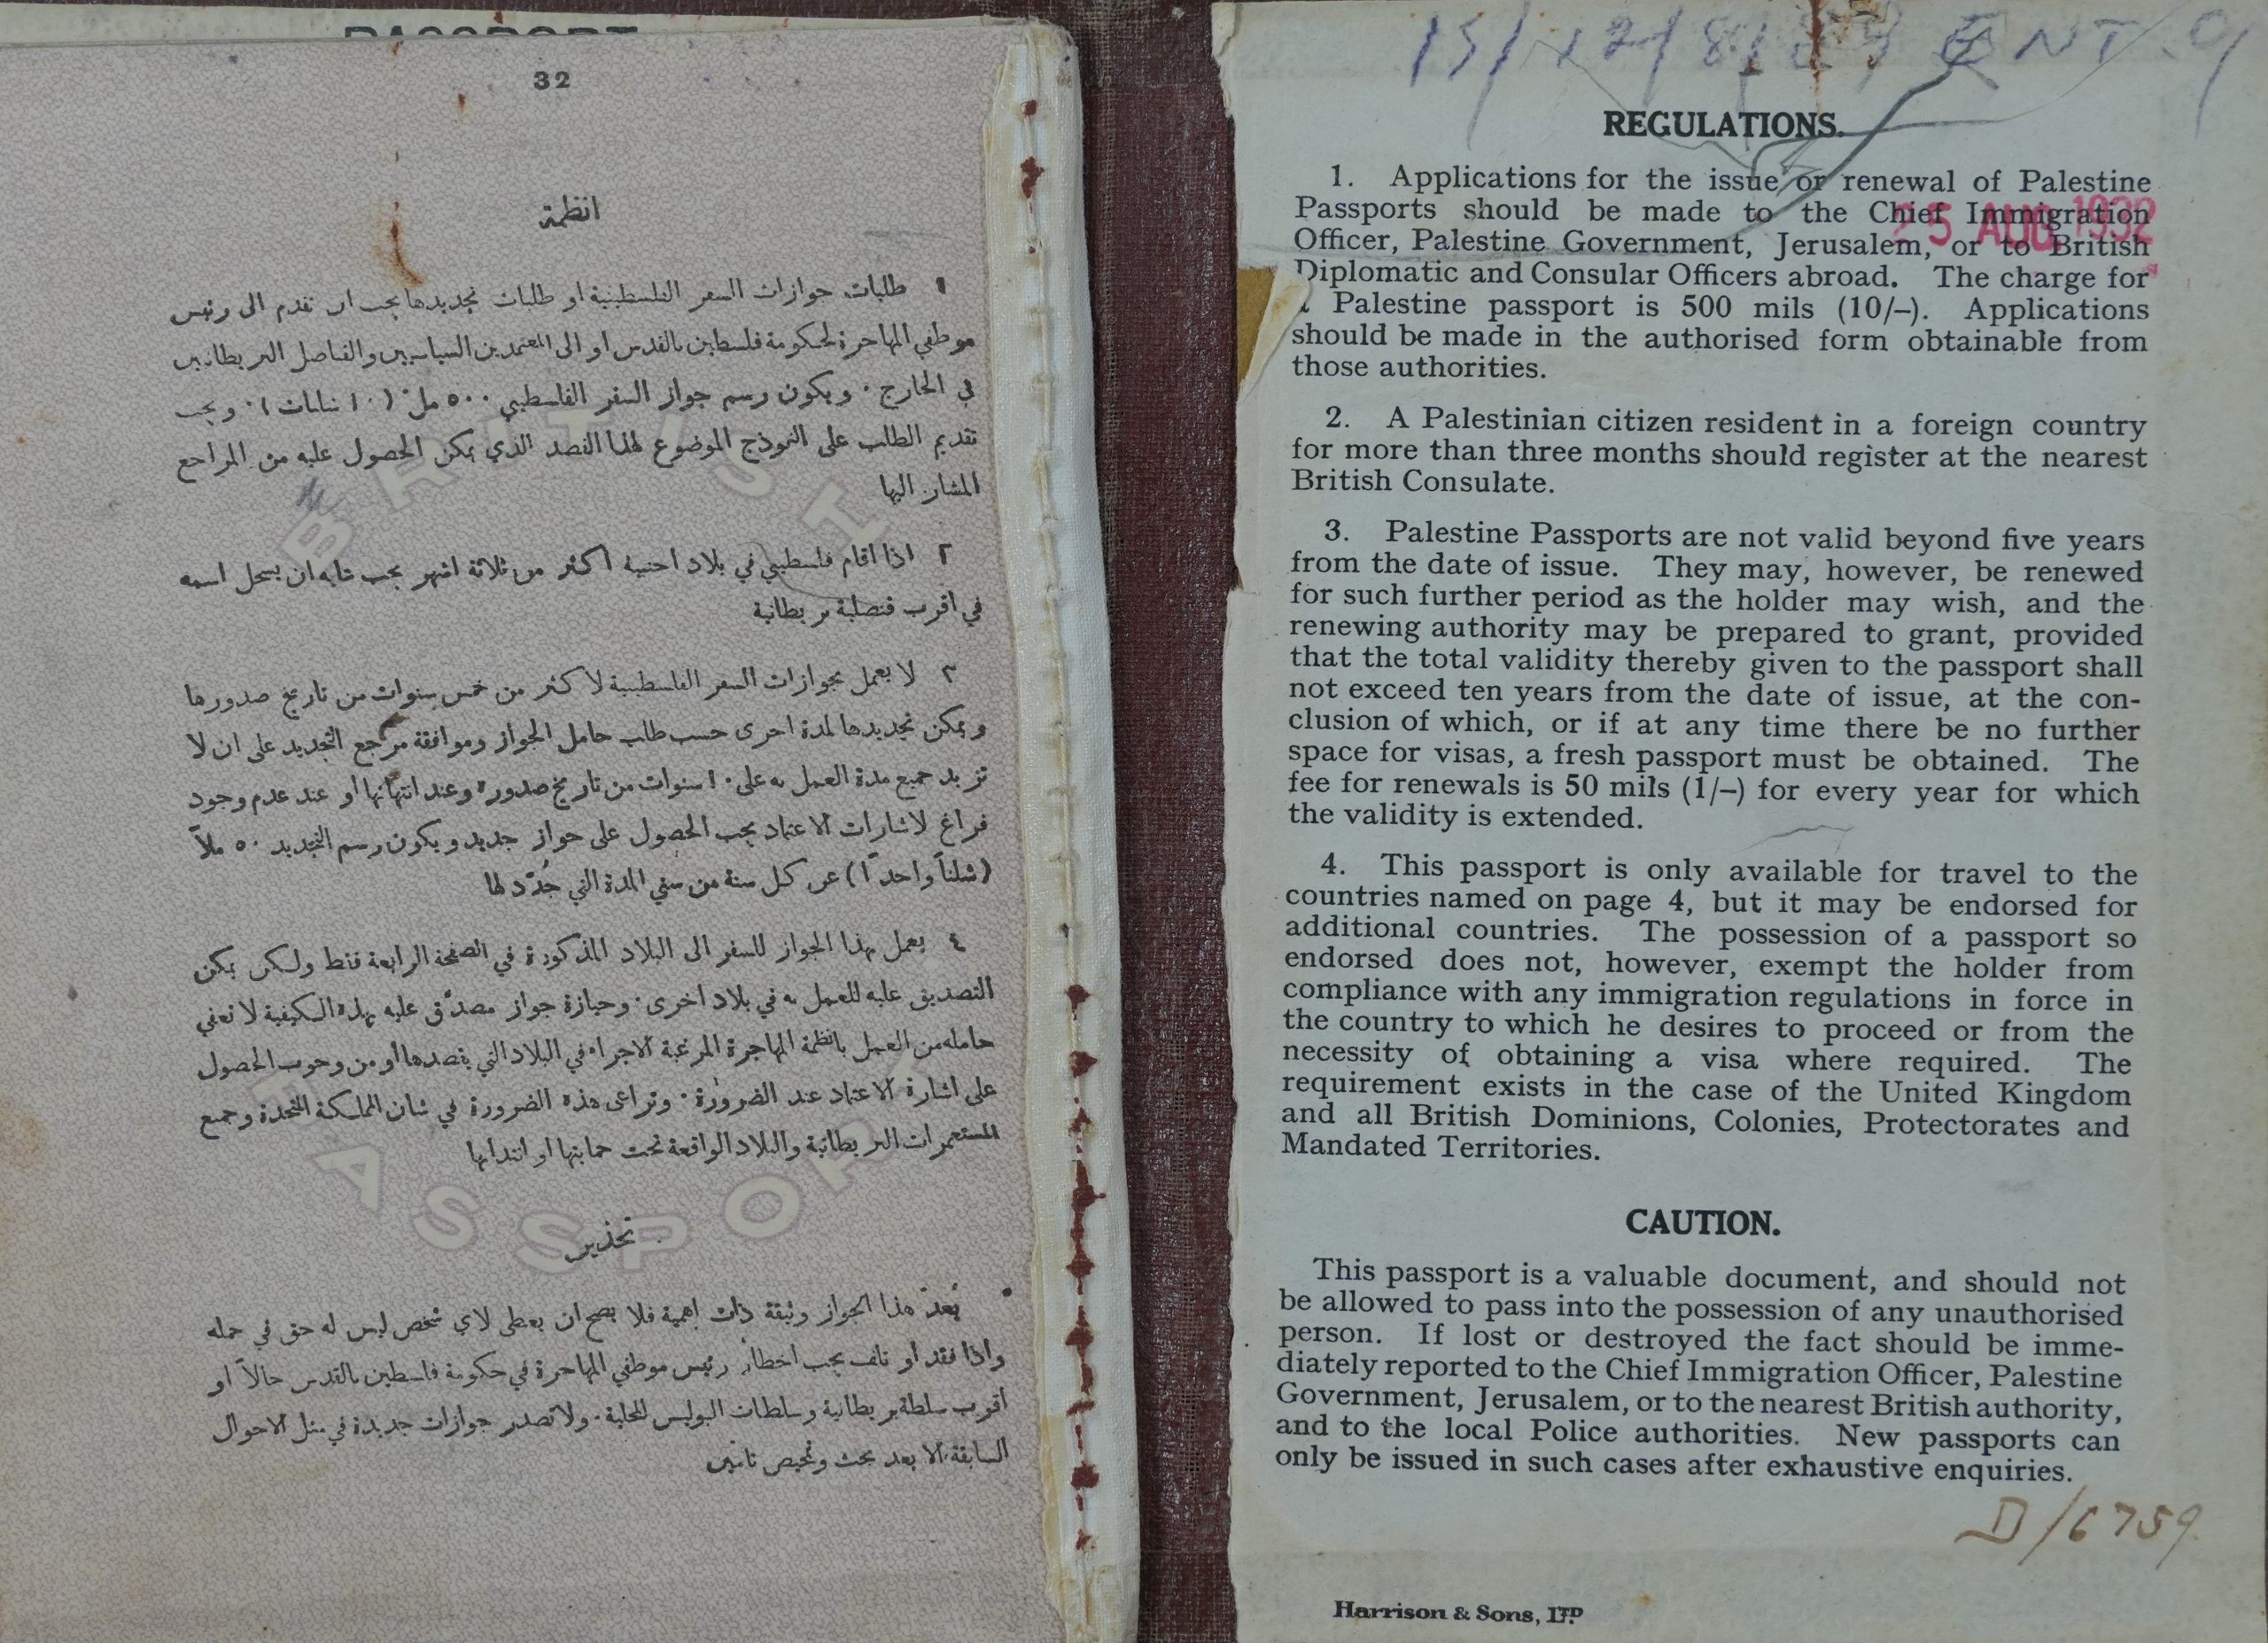 PASSPORT
32
انظمة
١ طلبات جوازات السفر الفلسطينية او طلبات تجديدها يجب ان تقدم الى رئيس
موظفي المهاجرة لحكومة فلسطين بالقدس او الى المعتمدين السياسيين والقناصل البريطانيين
في الخارج. ويكون رسم جواز السفر الفلسطيني ٥٠٠ مل (١٠ شلنات). ويجب
تقديم الطلب على النموذج الموضوع لهذا القصد الذي يمكن الحصول عليه من المراجع
المشار اليها
٢ اذا اقام فلسطيني في بلاد اجنبية اكثر من ثلاثة اشهر يجب عليه ان يسجل اسمه
في اقرب قنصلية بريطانية
٣ لا يعمل بجوازات السفر الفلسطينية لاكثر من خمس سنوات من تاريخ صدورها
ويمكن تجديدها لمدة اخرى حسب طلب حامل الجواز وموافقة مرجع التجديد على ان لا
تزيد جميع مدة العمل به على ١٠ سنوات من تاريخ صدوره وعند انتهائها او عند عدم وجود
فراغ لاشارات الاعتماد يجب الحصول على جواز جديد ويكون رسم التجديد ٥٠ ملاً
(شلناً واحداً) عن كل سنة من سني المدة التي جُدّد لها
٤ يعمل بهذا الجواز للسفر الى البلاد المذكورة في الصفحة الرابعة فقط ولكن يمكن
التصديق عليه للعمل به في بلاد اخرى. وحيازة جواز مصدَّق عليه بهذه الكيفية لا تعفي
حامله من العمل بانظمة المهاجرة المرعية الاجراء في البلاد التي يقصدها او من وجوب الحصول
على اشارة الاعتماد عند الضرورة. وتراعى هذه الضرورة في شان المملكة المتحدة وجميع
المستعمرات البريطانية والبلاد الواقعة تحت حمايتها او انتدابها
تحذير
يُعدّ هذا الجواز وثيقة ذات اهمية فلا يصح ان يعطى لاي شخص ليس له حق في حمله
واذا فقد او تلف يجب اخطار رئيس موظفي المهاجرة في حكومة فلسطين بالقدس حالاً او
اقرب سلطة بريطانية وسلطات البوليس المحلية. ولا تصدر جوازات جديدة في مثل الاحوال
السابقة الا بعد بحث وتمحيص تامين
BRITISH
PASSPORT
ENT
REGULATIONS.
25 AUG 1932
1. Applications for the issue or renewal of Palestine
Passports should be made to the Chief Immigration
Officer, Palestine Government, Jerusalem, or to British
Diplomatic and Consular Officers abroad. The charge for
a Palestine passport is 500 mils (10/–). Applications
should be made in the authorised form obtainable from
those authorities.
2. A Palestinian citizen resident in a foreign country
for more than three months should register at the nearest
British Consulate.
3. Palestine Passports are not valid beyond five years
from the date of issue. They may, however, be renewed
for such further period as the holder may wish, and the
renewing authority may be prepared to grant, provided
that the total validity thereby given to the passport shall
not exceed ten years from the date of issue, at the con-
clusion of which, or if at any time there be no further
space for visas, a fresh passport must be obtained. The
fee for renewals is 50 mils (1/–) for every year for which
the validity is extended.
4. This passport is only available for travel to the
countries named on page 4, but it may be endorsed for
additional countries. The possession of a passport so
endorsed does not, however, exempt the holder from
compliance with any immigration regulations in force in
the country to which he desires to proceed or from the
necessity of obtaining a visa where required. The
requirement exists in the case of the United Kingdom
and all British Dominions, Colonies, Protectorates and
Mandated Territories.
CAUTION.
This passport is a valuable document, and should not
be allowed to pass into the possession of any unauthorised
person. If lost or destroyed the fact should be imme-
diately reported to the Chief Immigration Officer, Palestine
Government, Jerusalem, or to the nearest British authority,
and to the local Police authorities. New passports can
only be issued in such cases after exhaustive enquiries.
D/6759
Harrison & Sons, LTD